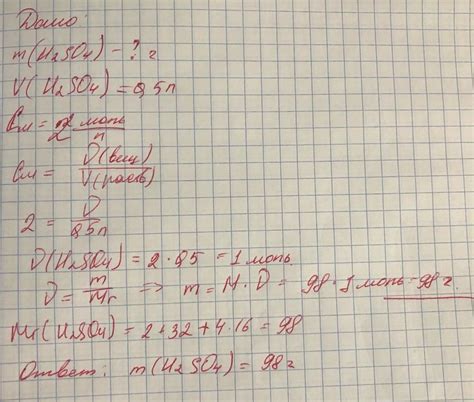 Дано:
m(H2SO4) - ? г
V(H2SO4) = 0,5л
См = 2 моль/л
См = ν(вещ)/V(раств)
2 = ν/0,5л
ν(H2SO4) = 2 · 0,5 = 1 моль.
ν = m/Mr ⇒ m = M · ν = 98 · 1 моль = 98 г.
Mr(H2SO4) = 2 + 32 + 4 · 16 = 98
Ответ: m(H2SO4) = 98 г